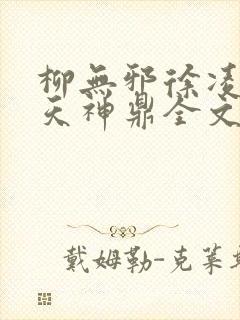 柳無邪徐凌
天神鼎全文
戴姆勒-克萊